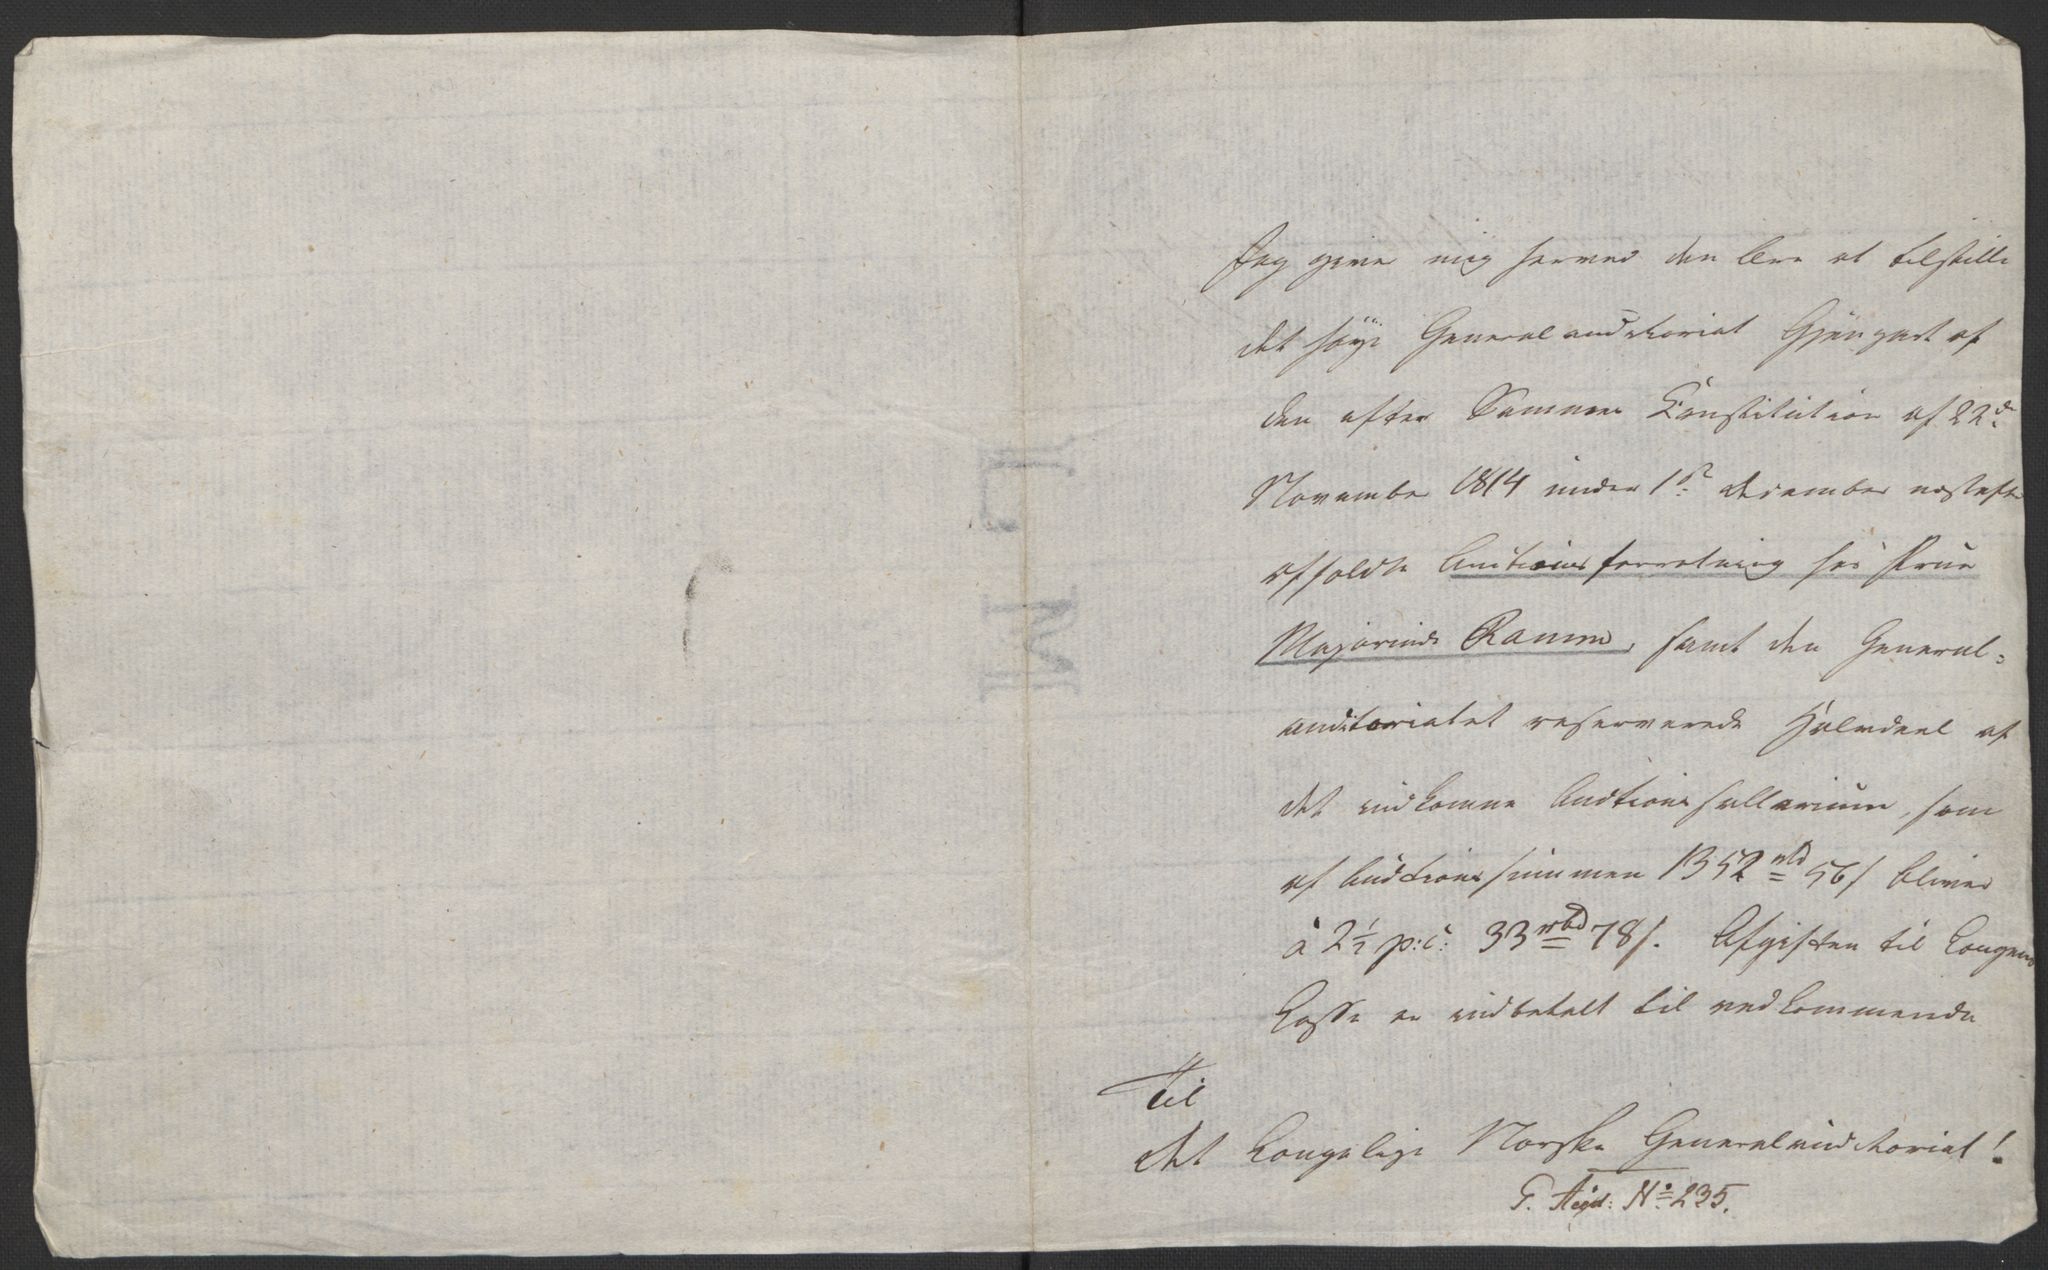 Jeg giver mig herved den Ære at tilstille
det høye Generalauditoriat Gjenpart af
den efter Sammes Constitution af 22de
November 1814 under 1ste December næstefter
afholdte Auctionsforretning hos Frue
Majorinde Ramm, samt den General-
auditoriatet reserverede Halvdeel af
det indkomne Auctionssallarium, som
af Auctionssummen 1352 rbd 56 s bliver
à 2½ p: c: 33 rbd 78 s. Afgiften til Kongens
Casse er indbetalt til vedkommende
Til
Det Kongelige Norske Generalauditoriat!
G. Aud: No 235.